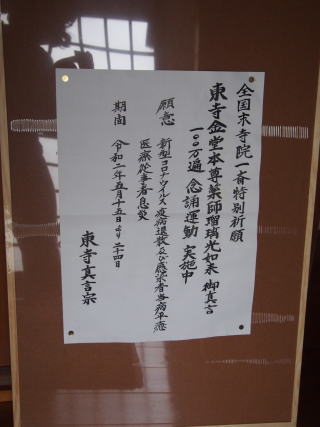 全国末寺院一斉特別祈願
東寺金堂本尊薬師瑠璃光如来 御真言
一〇〇万遍 念誦運動 実施中
願意 新型コロナウイルス疫病退散及び感染者当病平癒
医療従事者息災
期間 令和二年五月十五日より二十四日
東寺真言宗